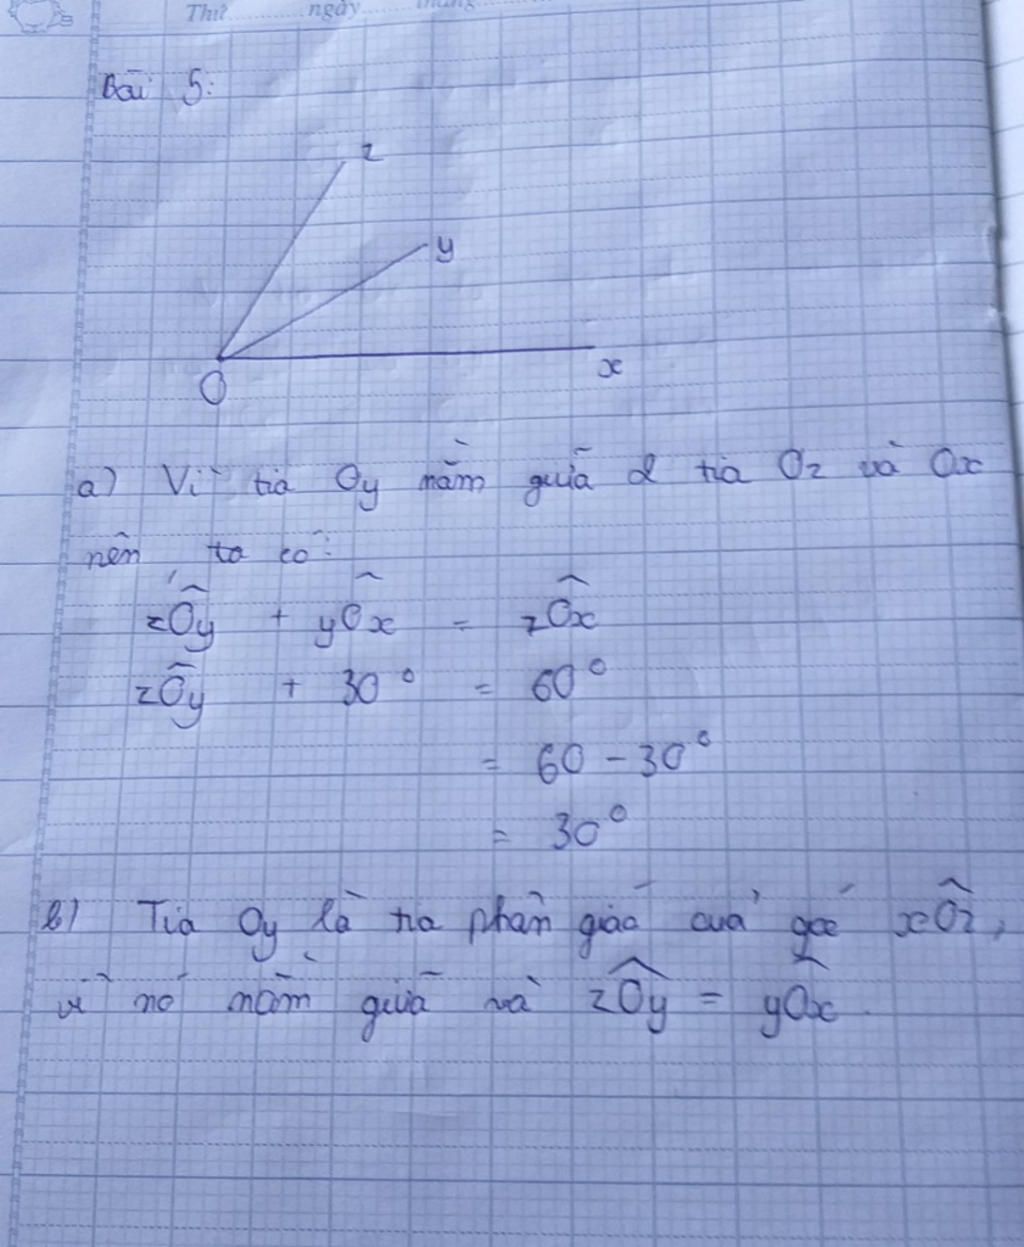 Thứ ngày tháng
Bài 5:
z
y
x
O
a) Vì tia Oy nằm giữa 2 tia Oz và Ox
nên ta có:
zÔy + yÔx = zÔx
zÔy + 30° = 60°
= 60 - 30°
= 30°
b) Tia Oy là tia phân giác của góc xÔz,
vì nó nằm giữa và zÔy = yÔx.